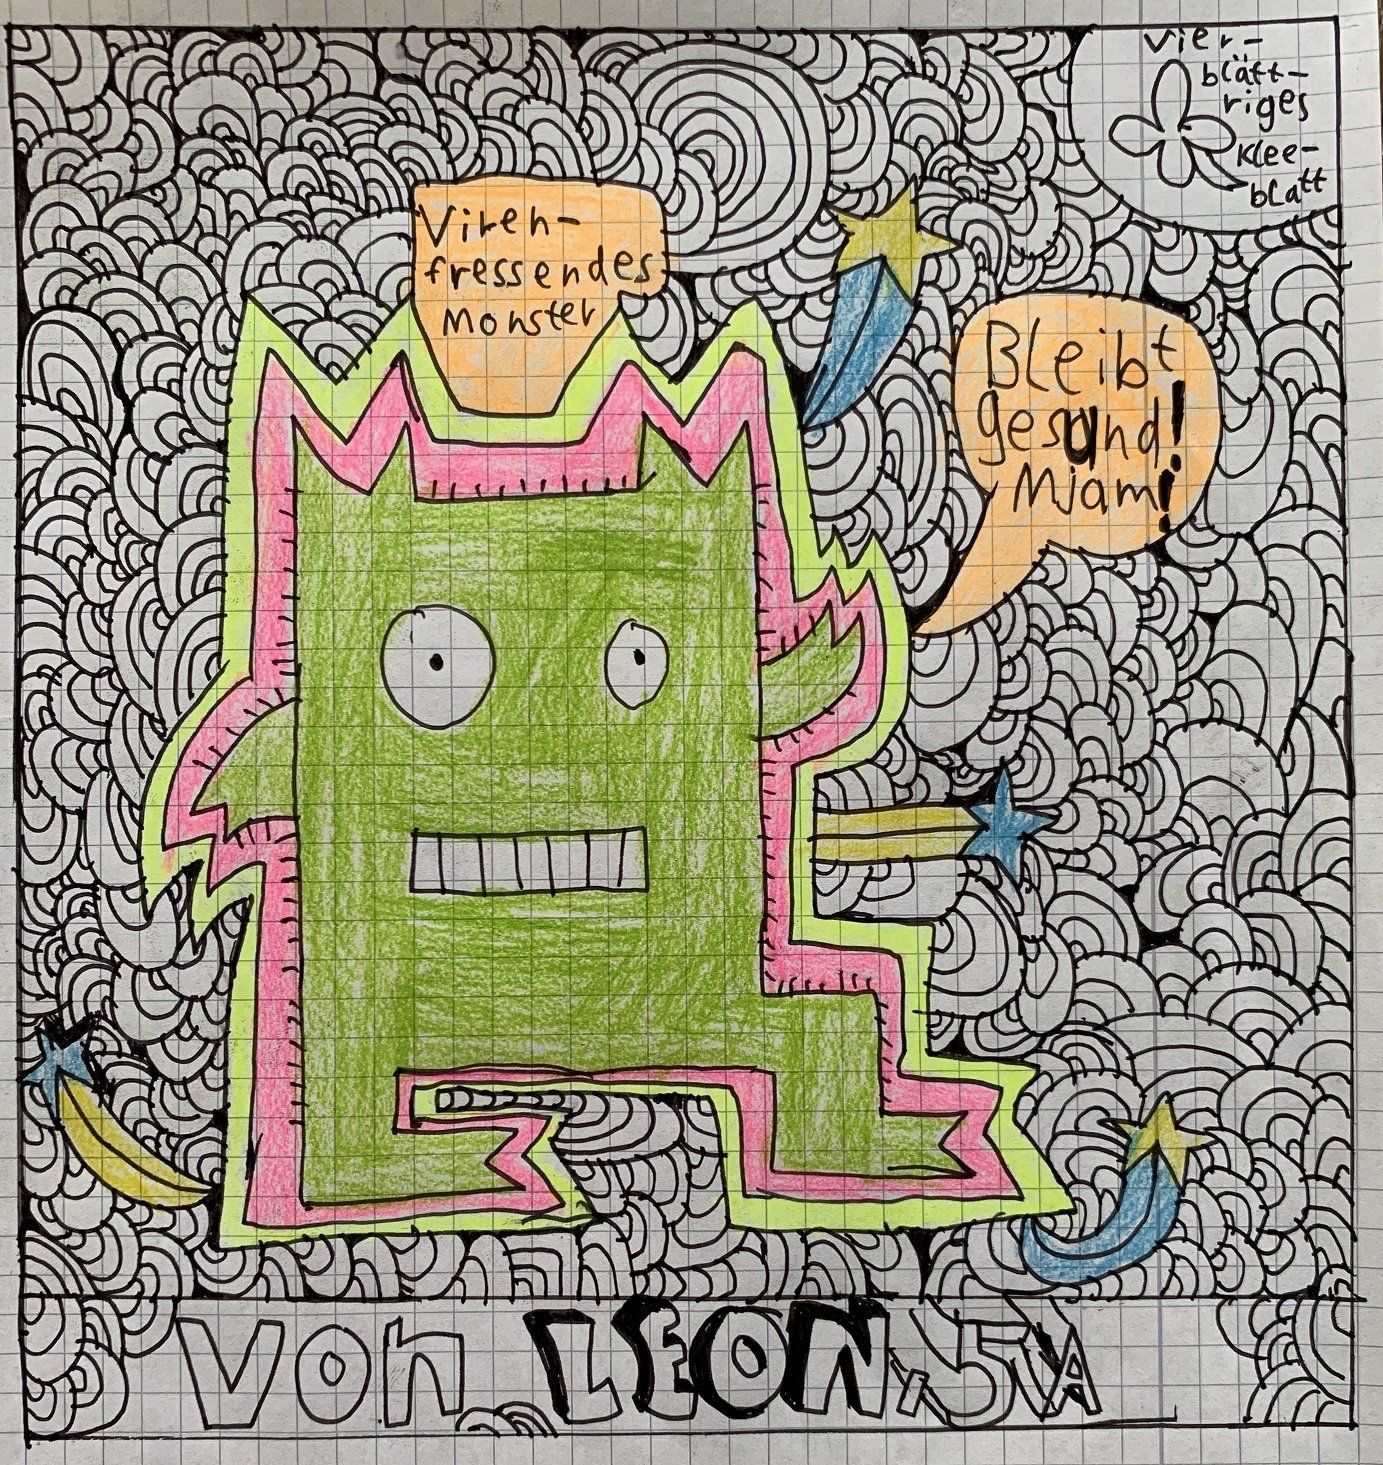 Vier-
blätt-
riges
Klee-
blatt
Viren-
fressendes
Monster
Bleibt
gesund!
Mjam!
von LEON, 5A